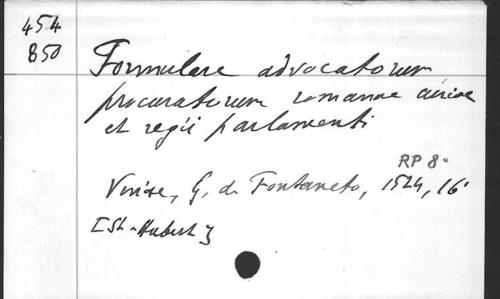 454
850
Formulare advocatorum
procuratorum romanae curiae
et regii parlamenti
RP 8°
Venise, G. de Fontaneto, 1524, 16°
[St-Hubert]